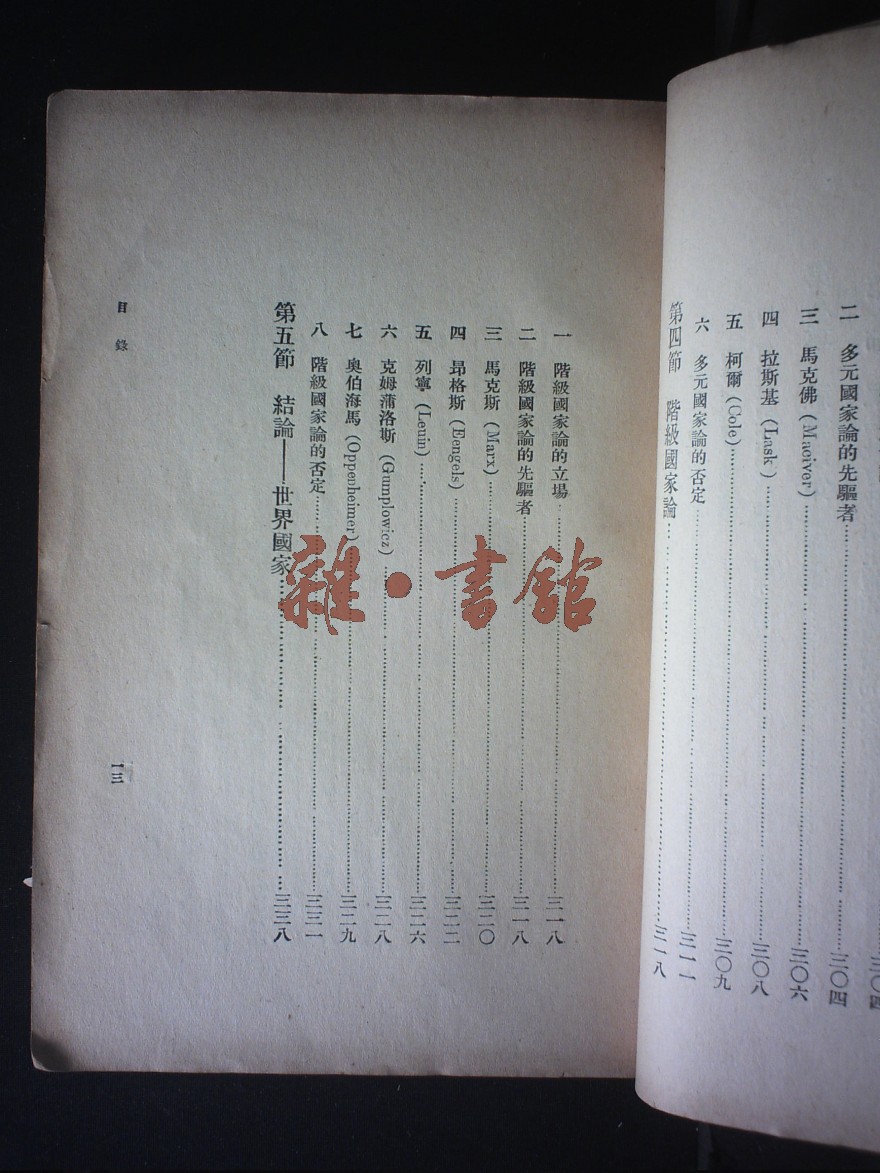 二 多元國家論的先驅者……三〇四
三 馬克佛 (Maciver)……三〇六
四 拉斯基 (Lask )……三〇八
五 柯爾 (Cole)……三〇九
六 多元國家論的否定……三一一
第四節 階級國家論……三一八
一 階級國家論的立場……三一八
二 階級國家論的先驅者……三一八
三 馬克斯 (Marx)……三二〇
四 昂格斯 (Eengels)……三二二
五 列寧 (Leuin)……三二六
六 克姆蒲洛斯 (Gumplowicz)……三二八
七 奥伯海馬 (Oppenheimer)……三二九
八 階級國家論的否定……三三一
第五節 結論——世界國家……三三八
目錄
一三
雜·書館